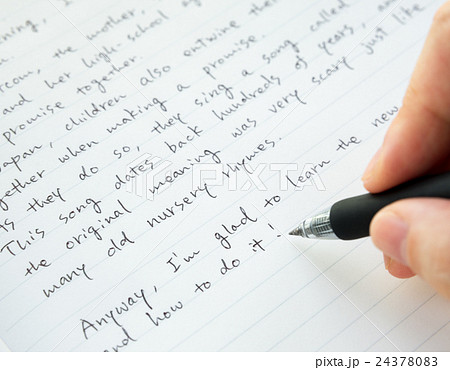 ning, I
rcom, the mother,
and her high-school ag
promise together.
apan, children also entwine their
ogether when making a promise.
As they do so, they sing a song called
This song dates back hundreds of years, and
the original meaning was very scary just like
many old nursery rhymes.
Anyway, I'm glad to learn the new
and how to do it!
PIXTA
pixta.jp - 24378083